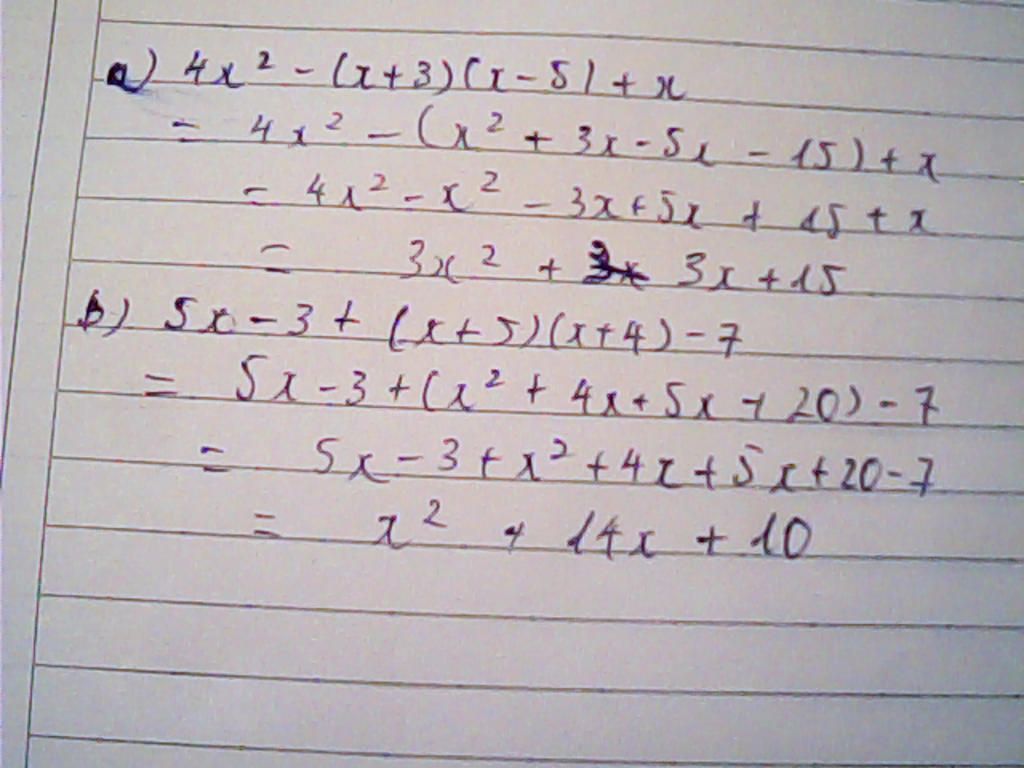 a) 4x² - (x+3)(x-5) + x
= 4x² - (x² + 3x - 5x - 15) + x
= 4x² - x² - 3x + 5x + 15 + x
= 3x² + 3x + 15
b) 5x - 3 + (x+5)(x+4) - 7
= 5x - 3 + (x² + 4x + 5x + 20) - 7
= 5x - 3 + x² + 4x + 5x + 20 - 7
= x² + 14x + 10